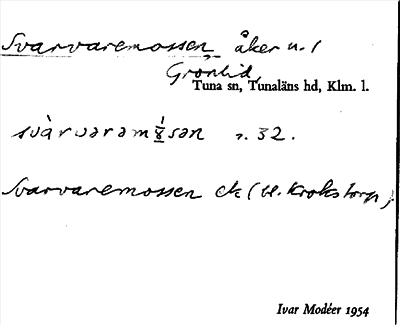 Svarvaremossen, åker u. /
Grönlid,
Tuna sn, Tunaläns hd, Klm. l.
svàrvaramo̱sən 2. 32.
Svarvaremossen ek (bl. Krokstorp)
Ivar Modéer 1954